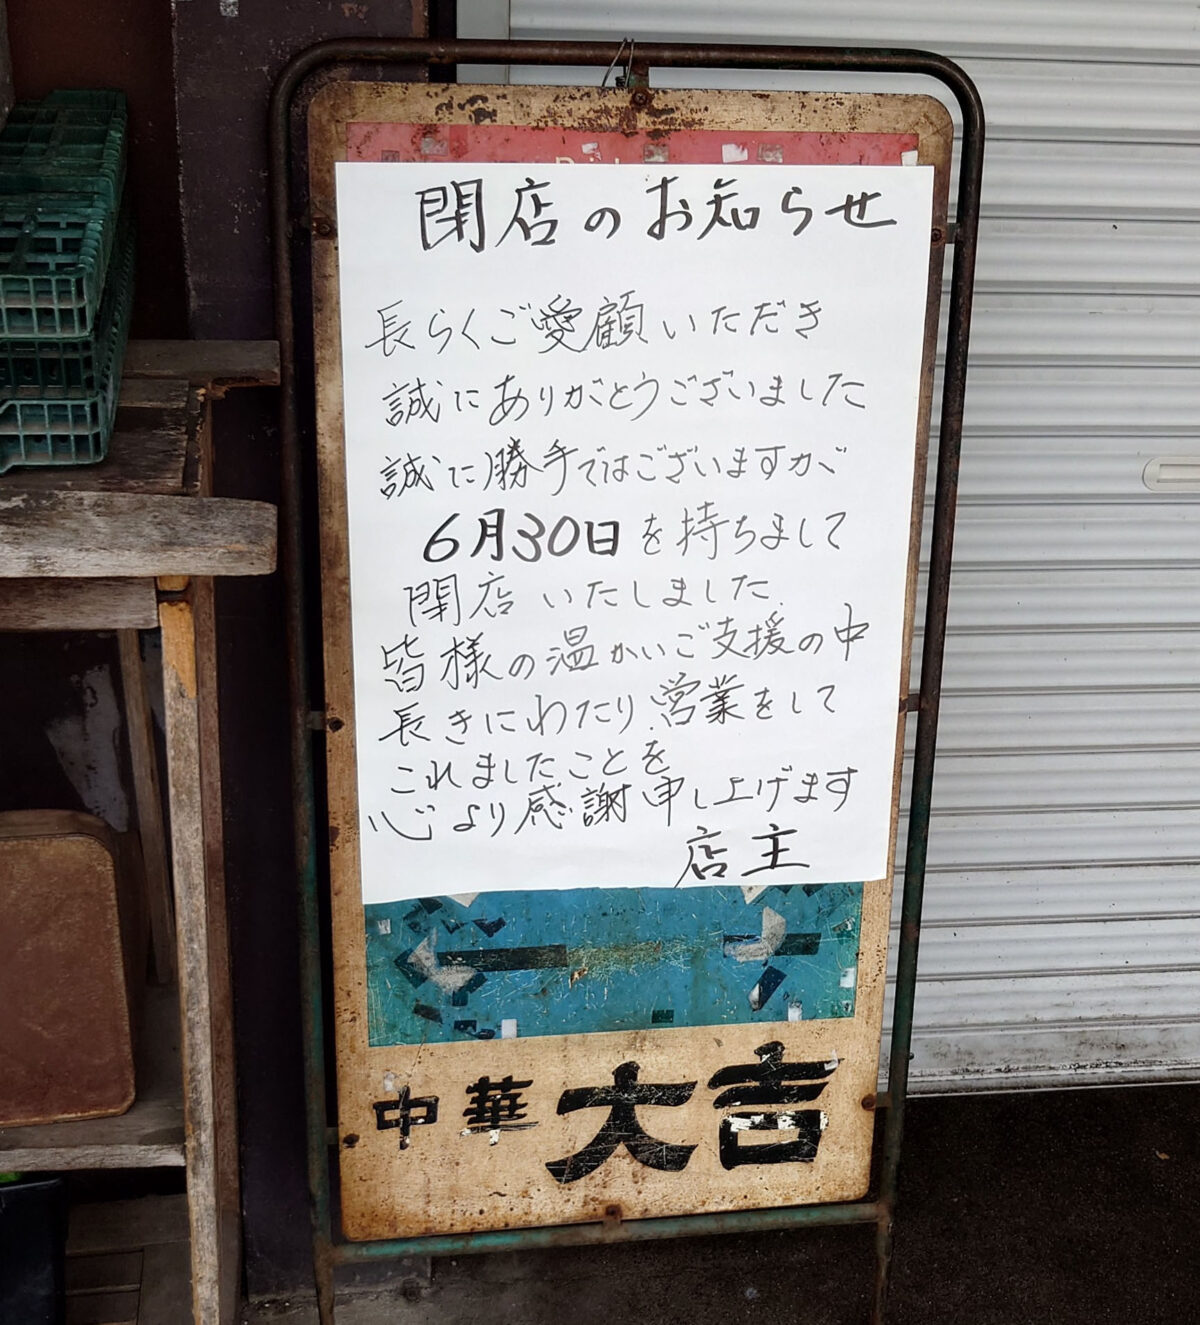 閉店のお知らせ
長らくご愛顧いただき
誠にありがとうございました
誠に勝手ではございますが
6月30日を持ちまして
閉店いたしました
皆様の温かいご支援の中
長きにわたり営業をして
これましたことを
心より感謝申し上げます
店主
中華 大吉